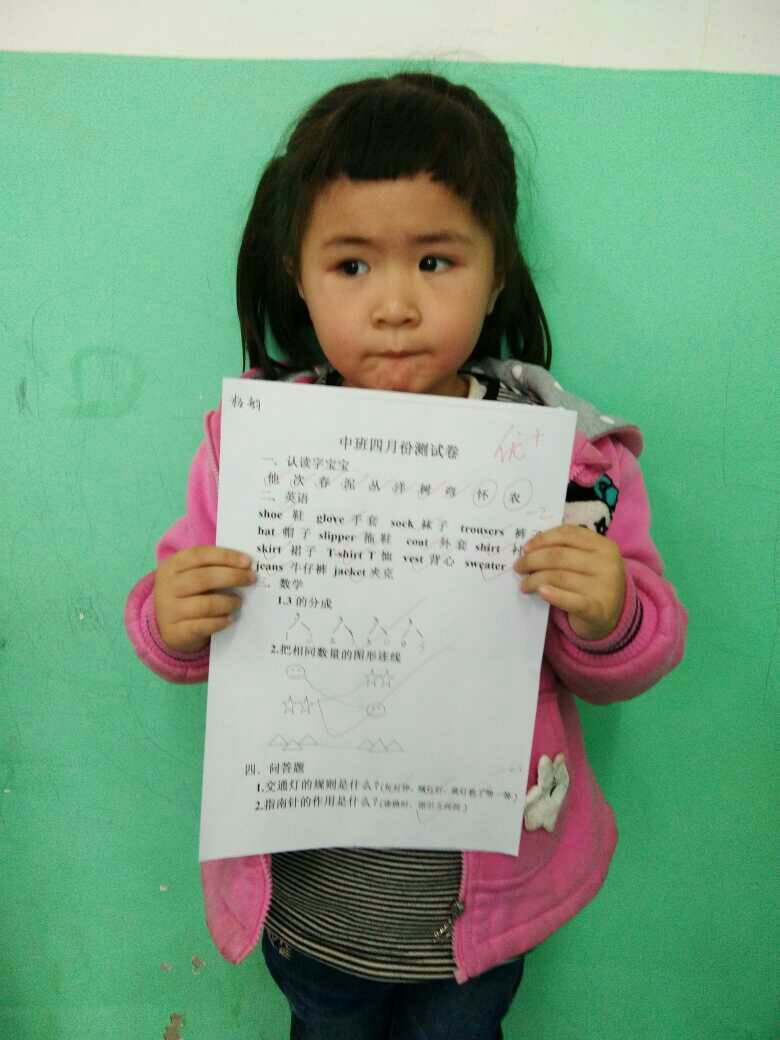 中班四月份测试卷
优+
一、认读字宝宝
他 次 春 泥 丛 洋 树 弯 怀 农
二、英语
shoe 鞋 glove 手套 sock 袜子 trousers 裤
hat 帽子 slipper 拖鞋 coat 外套 shirt 衬
skirt 裙子 T-shirt T恤 vest 背心 sweater
jeans 牛仔裤 jacket 夹克
数学
1.3 的分成
2.把相同数量的图形连线
四、问答题
1.交通灯的规则是什么?
2.指南针的作用是什么?